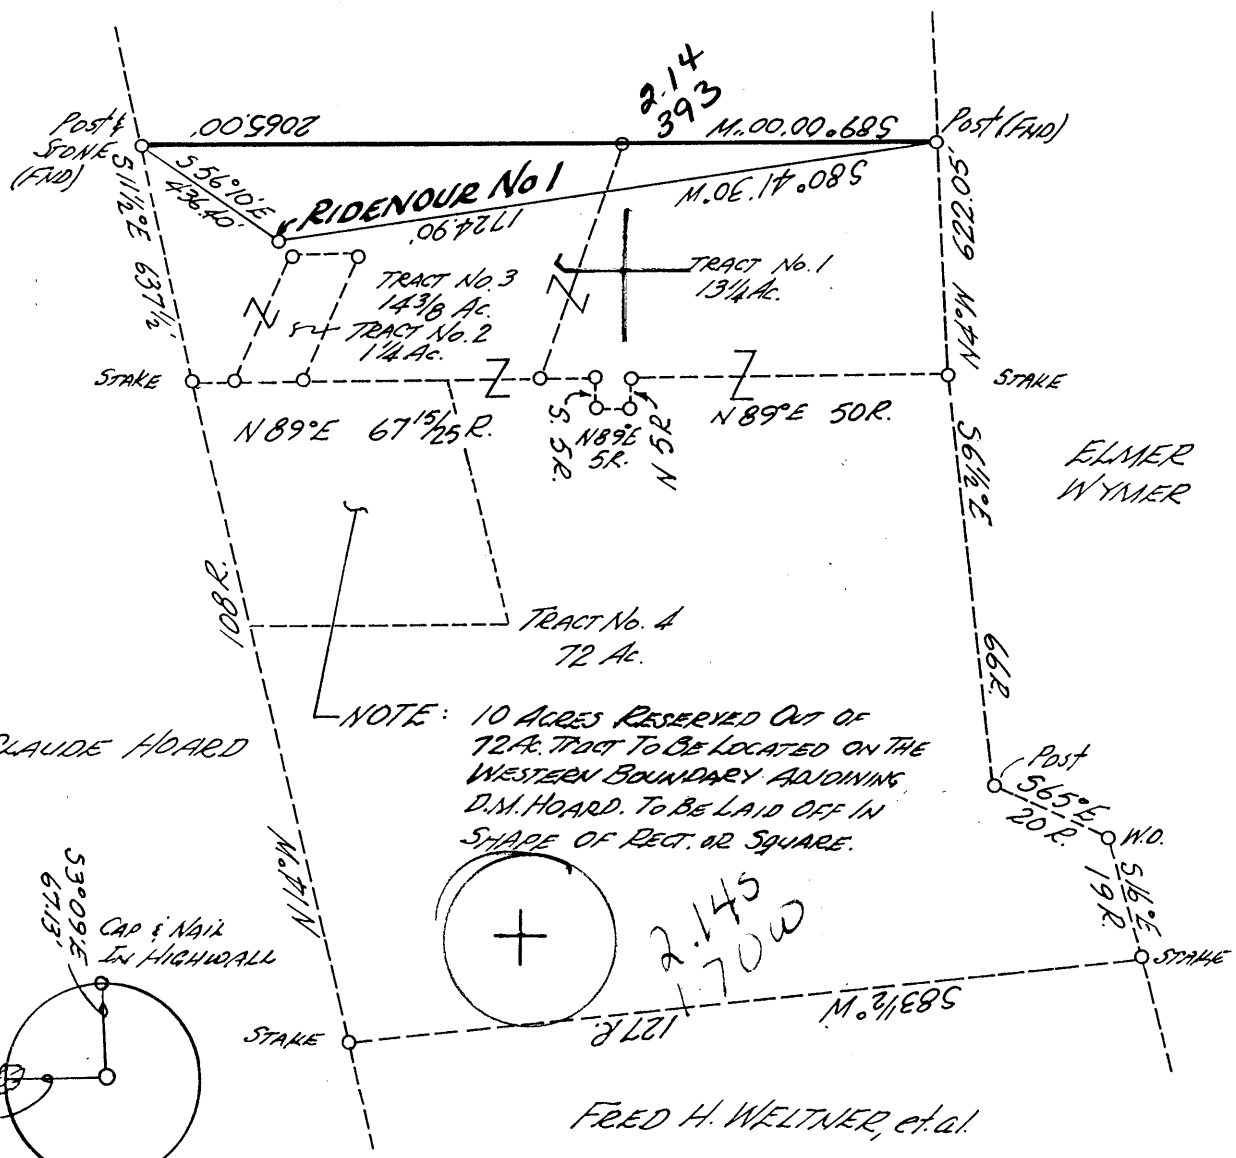 2.14
393
Post &
STONE
(FND)
2065.00'
S89°00'00"W
Post (FND)
S 56°10'E
436.40'
RIDENOUR No 1
1724.90'
S80°41'30"W
S11½°E 637½'
N4°W 622.05'
TRACT No. 3
14 3/8 Ac.
TRACT No. 2
1¼ Ac.
TRACT No. 1
13¼ Ac.
STAKE
STAKE
N 89°E 67 15/25 R.
S. 5R.
N89°E
5R.
N 5R
N 89°E 50R.
S6½°E
66R.
ELMER
WYMER
108 R.
N14°W
TRACT No. 4
72 Ac.
NOTE: 10 ACRES RESERVED OUT OF
72 Ac. TRACT TO BE LOCATED ON THE
WESTERN BOUNDARY ADJOINING
D.M. HOARD. TO BE LAID OFF IN
SHAPE OF RECT. OR SQUARE.
CLAUDE HOARD
Post
S65°E
20 R.
W.O.
S16°E
19R.
STAKE
2.14S
1.70W
S3°09'E
67.13'
CAP & NAIL
IN HIGHWALL
STAKE
127 R.
S83½°W
FRED H. WELTNER, et.al.